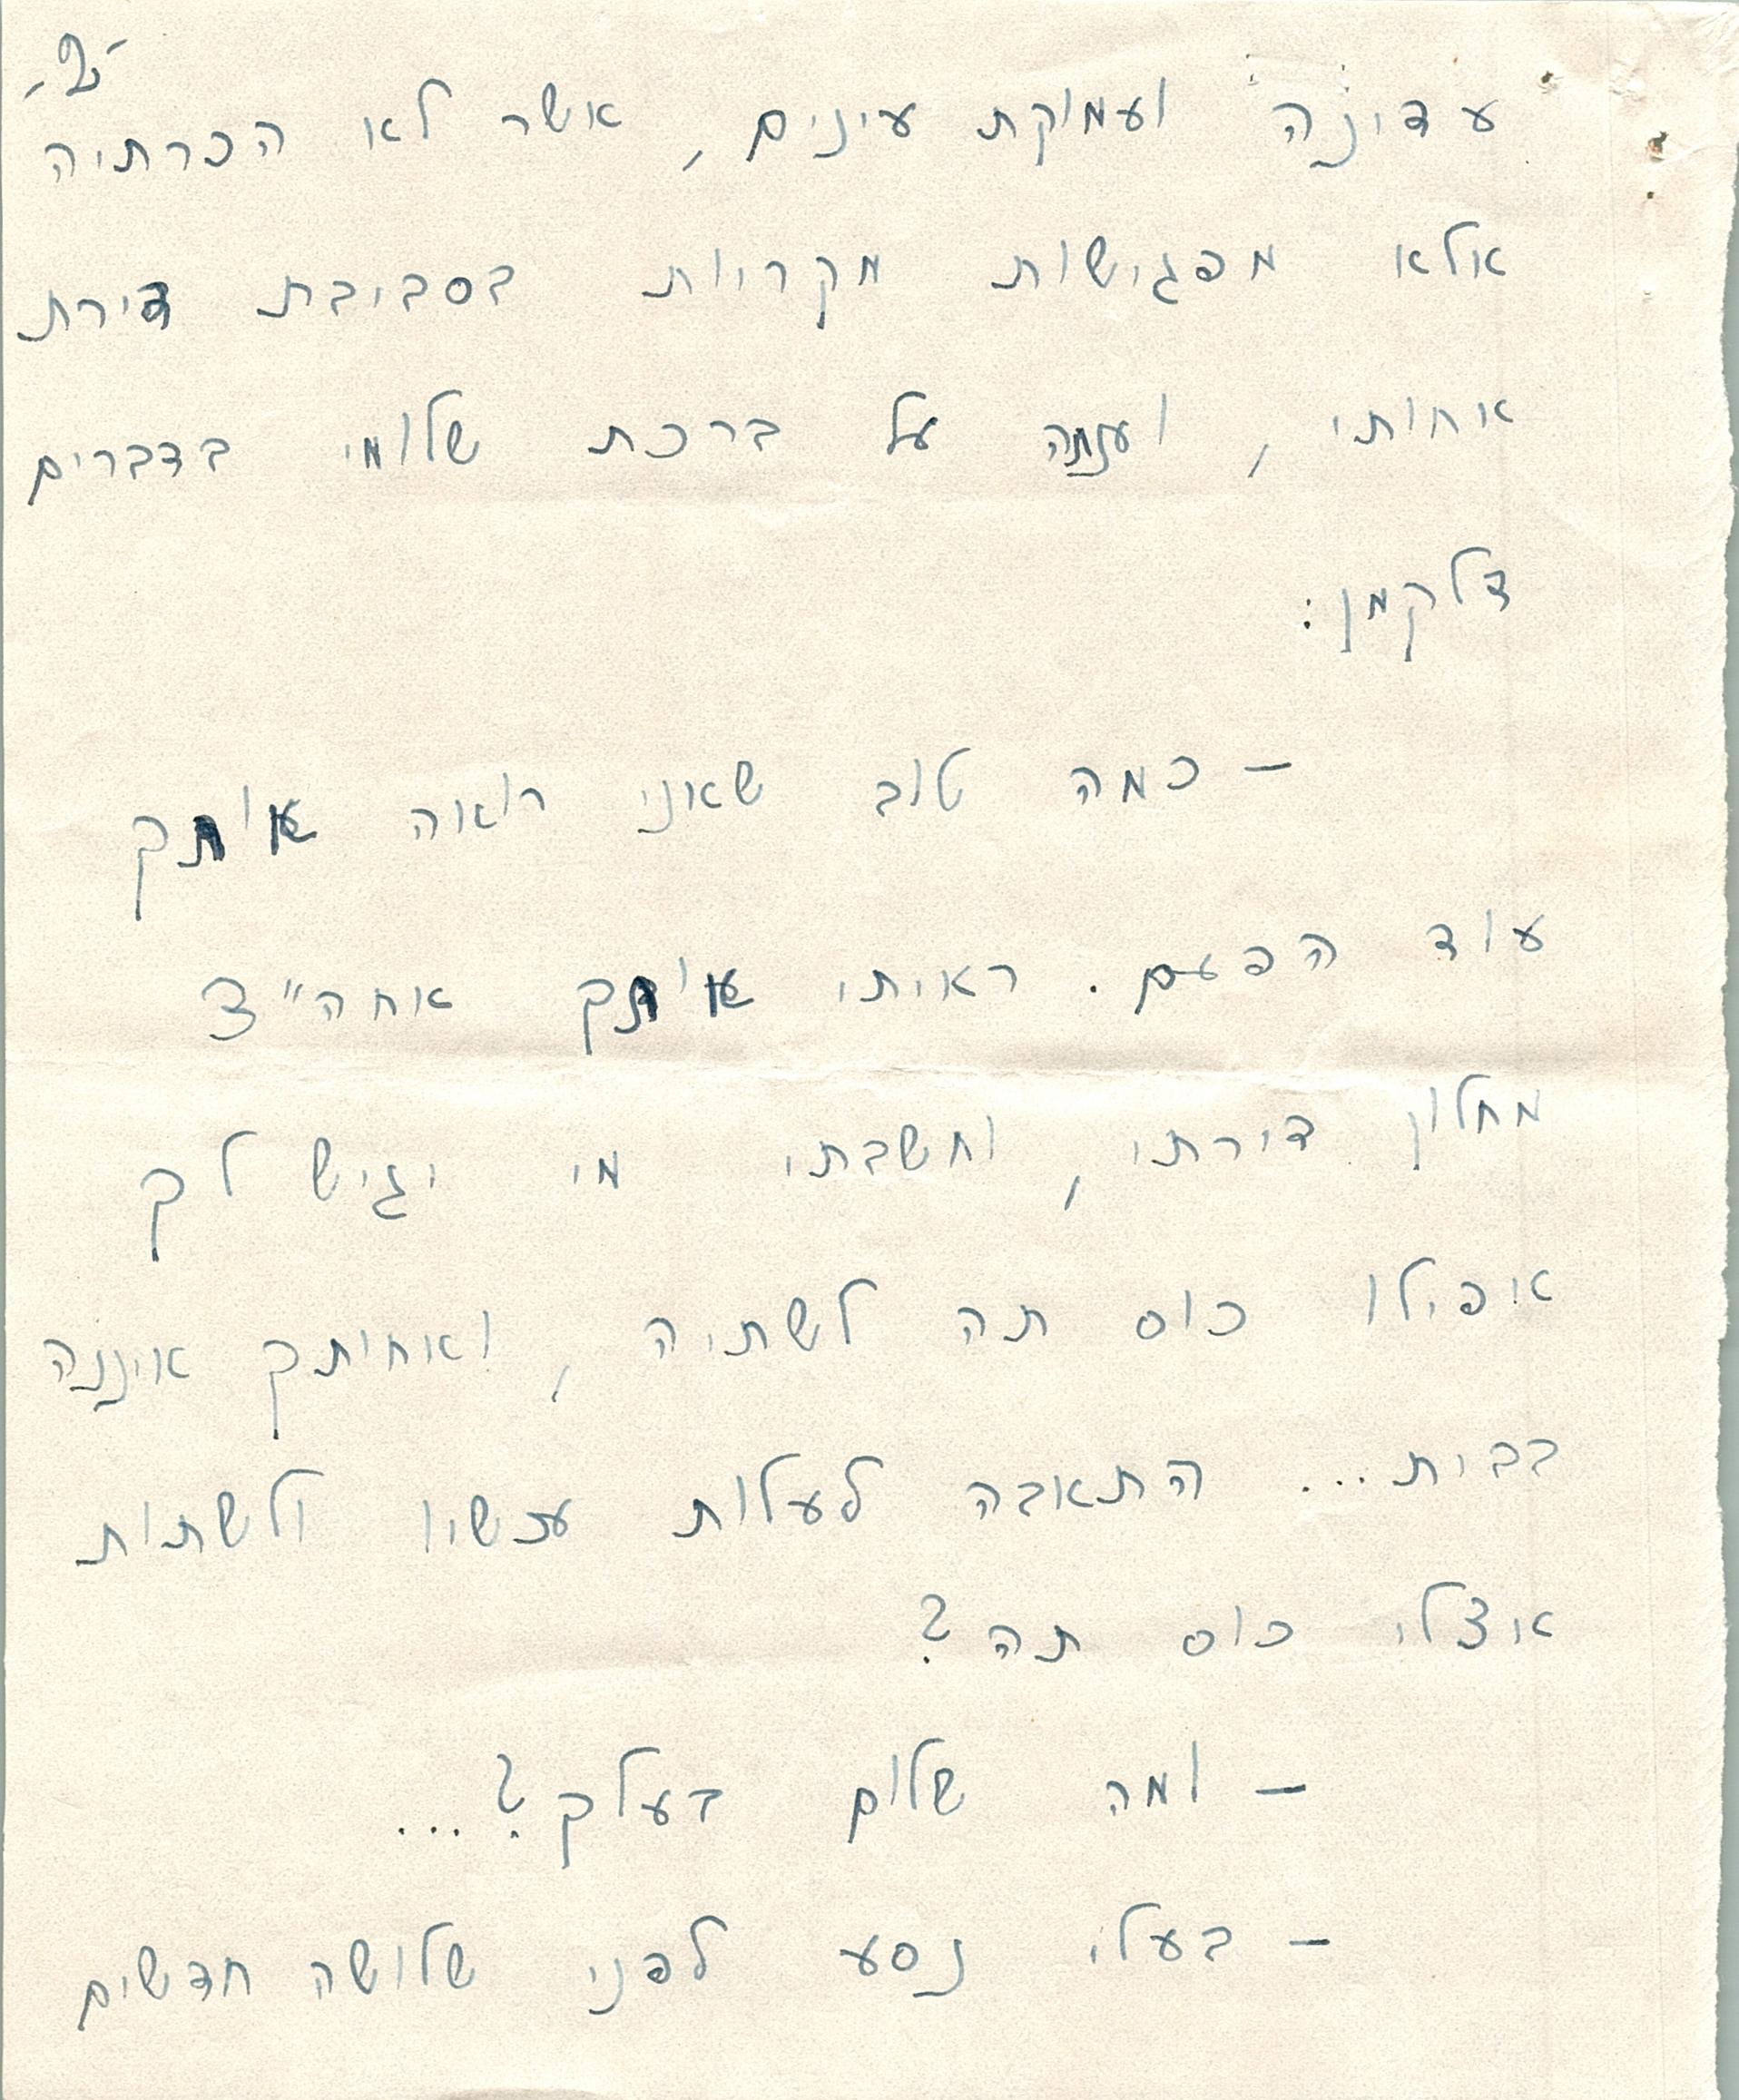 -2-
עדינה ועמוקת עינים, אשר לא הכרתיה
אלא מפגישות מקריות בסביבת דירת
אחותי, וענתה על ברכת שלומי בדברים
דלקמן:
– כמה טוב שאני רואה אותך
עוד הפעם. ראיתי אותך אחה״צ
מחלון דירתי, וחשבתי מי יגיש לך
אפילו כוס תה לשתיה, ואחותך איננה
בבית... התאבה לעלות עכשיו ולשתות
אצלי כוס תה?
– ומה שלום בעלך?...
– בעלי נסע לפני שלושה חדשים